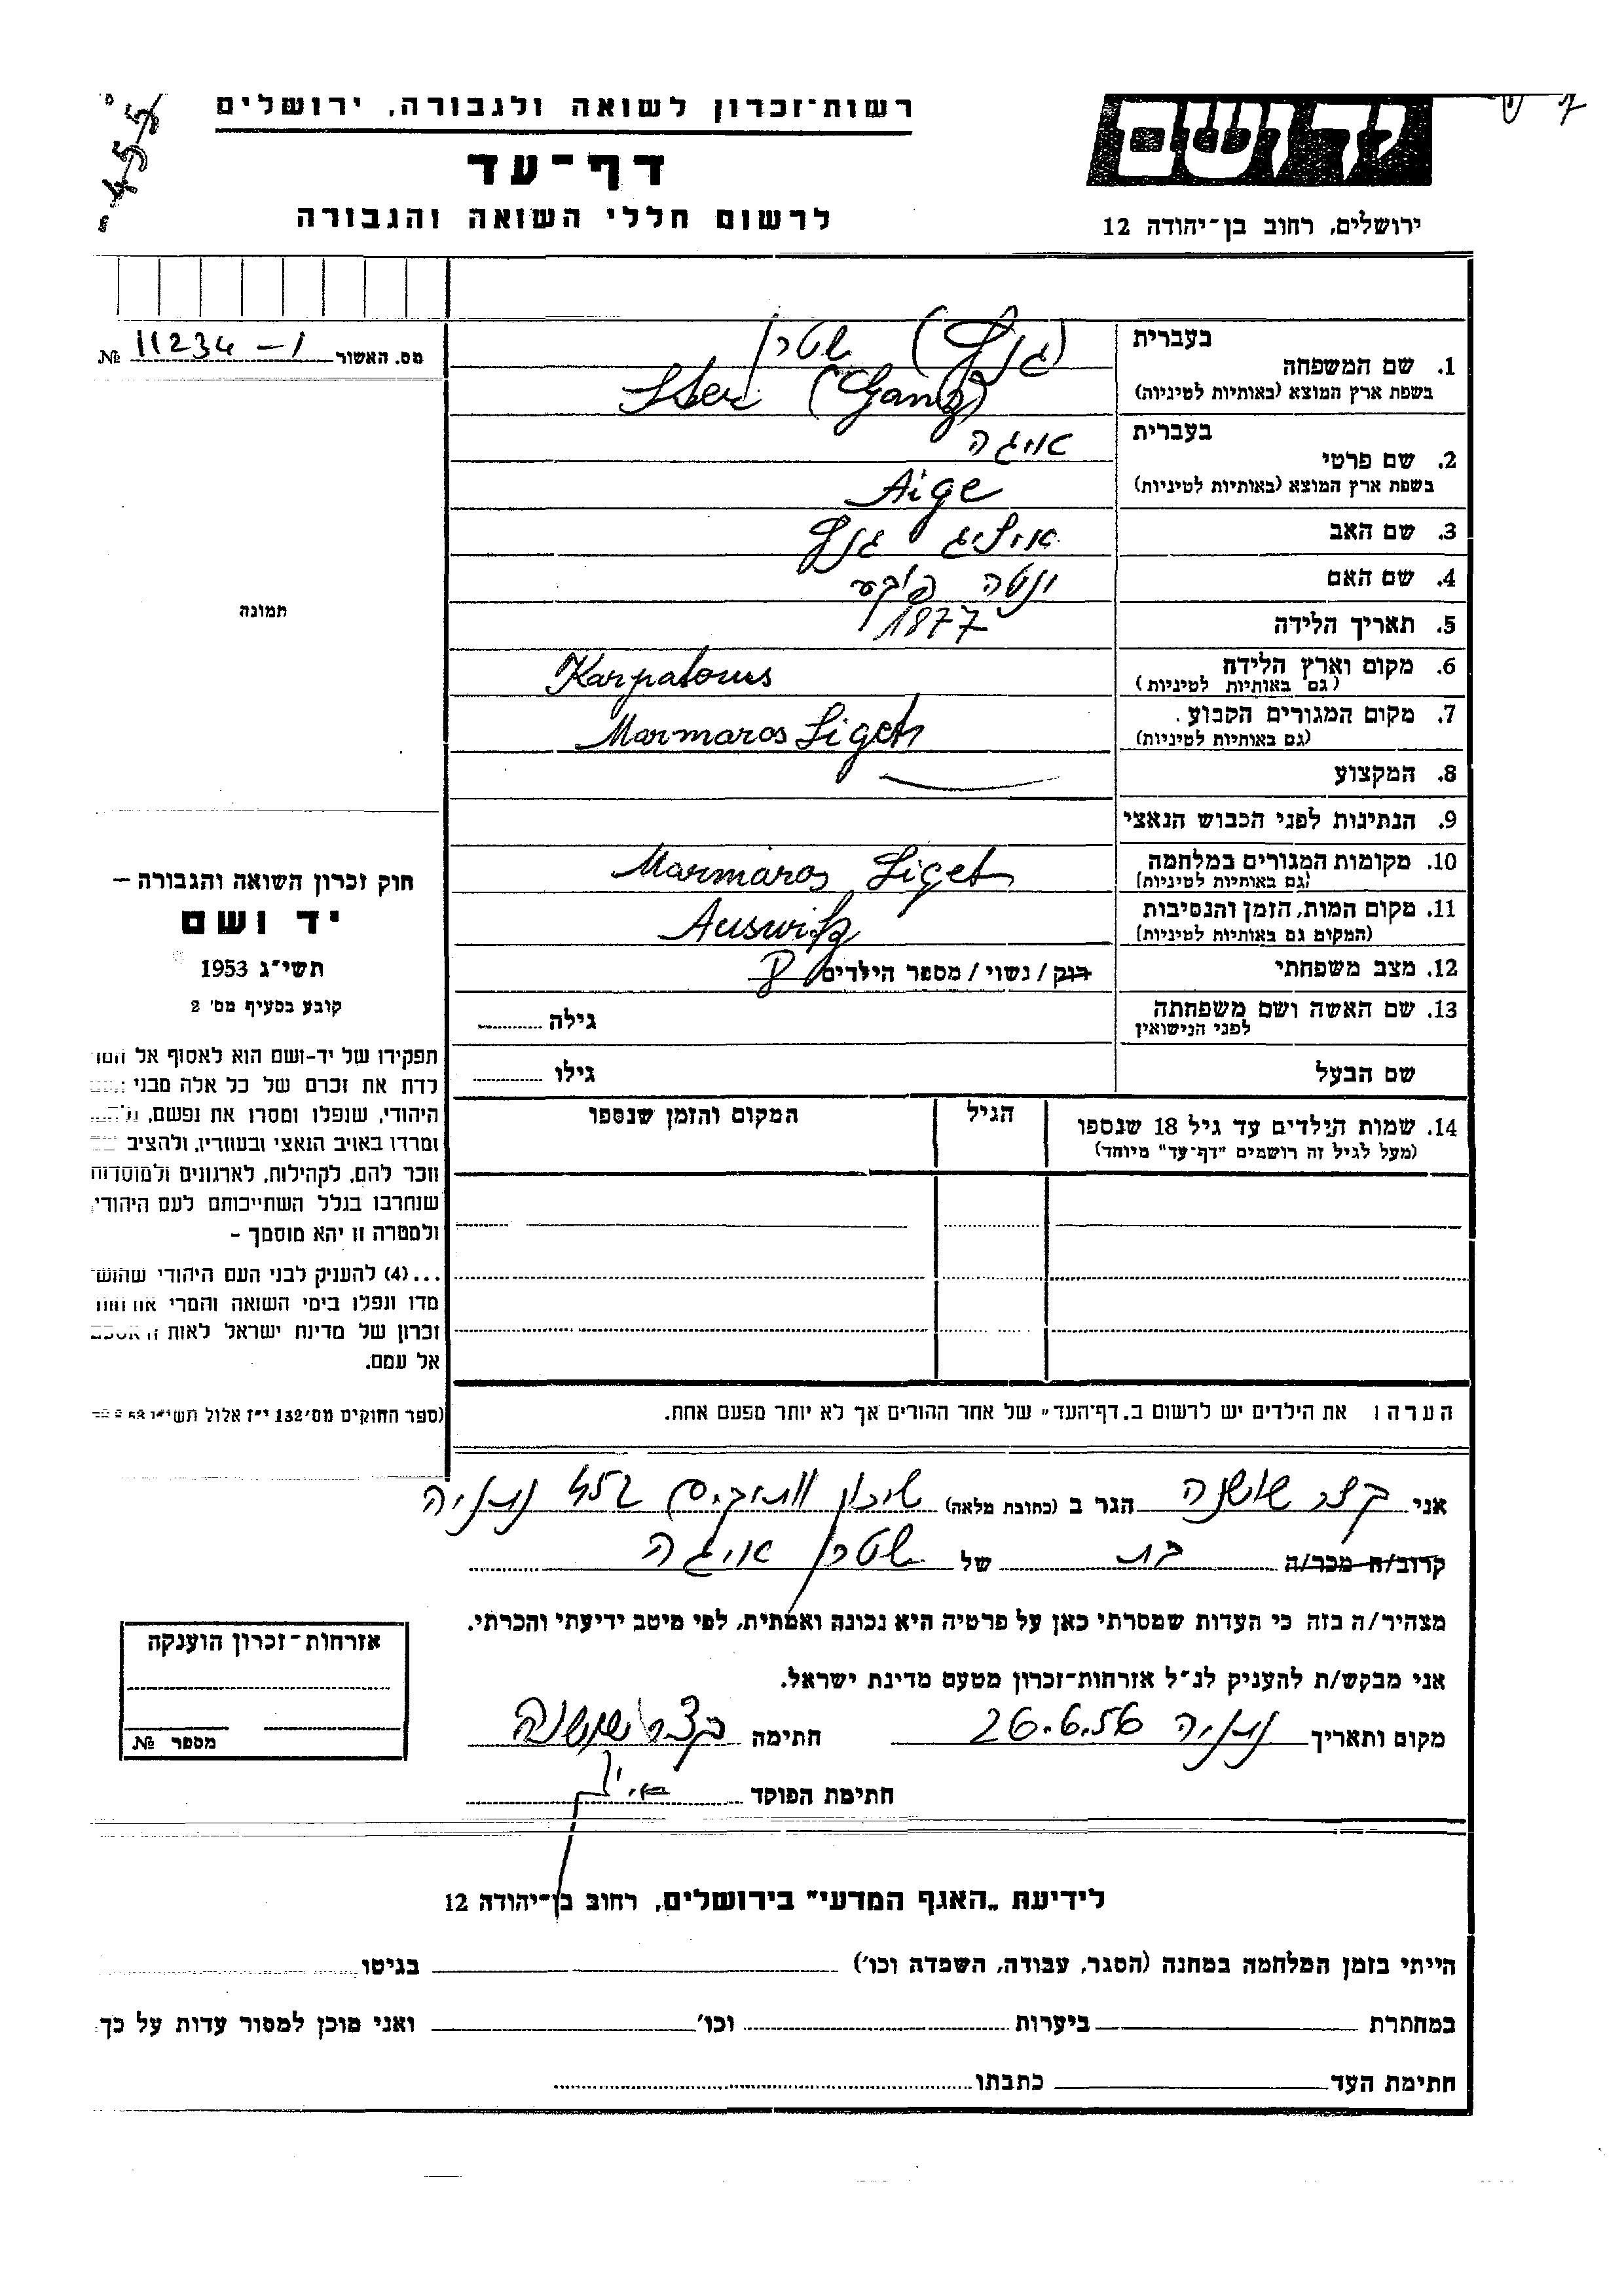 רשות־זכרון לשואה ולגבורה, ירושלים
דף־עד
לרשום חללי השואה והגבורה
ידושם
ירושלים, רחוב בן־יהודה 12
מס. האשור 11234 – 1 №
1. שם המשפחה
בעברית
(גנץ) שטרן
בשפת ארץ המוצא (באותיות לטיניות)
Ster (Ganz)
2. שם פרטי
בעברית
אייגה
בשפת ארץ המוצא (באותיות לטיניות)
Aige
3. שם האב
גנץ
4. שם האם
יוטה
5. תאריך הלידה 1877
6. מקום וארץ הלידה
(גם באותיות לטיניות)
Karpatorus
7. מקום המגורים הקבוע
(גם באותיות לטיניות)
Marmaros Siget
8. המקצוע
9. הנתינות לפני הכבוש הנאצי
10. מקומות המגורים במלחמה
(גם באותיות לטיניות)
Marmaros Siget
11. מקום המות, הזמן והנסיבות
(המקום גם באותיות לטיניות)
Auswitz
12. מצב משפחתי
רוק / נשוי / מספר הילדים 8
13. שם האשה ושם משפחתה
לפני הנישואין
גילה
שם הבעל
גילו
14. שמות הילדים עד גיל 18 שנספו
(מעל לגיל זה רושמים "דף־עד" מיוחד)
הגיל
המקום והזמן שנספו
הערה ו את הילדים יש לרשום ב„דף־העד" של אחד ההורים אך לא יותר מפעם אחת.
תמונה
חוק זכרון השואה והגבורה –
יד ושם
תשי"ג 1953
קובע בסעיף מס' 2
תפקידו של יד-ושם הוא לאסוף אל המו
לדת את זכרם של כל אלה מבני
היהודי, שנפלו ומסרו את נפשם,
ומרדו באויב הנאצי ובעוזריו, ולהציב
וזכר להם, לקהילות, לארגונים ולמוסדות
שנחרבו בגלל השתייכותם לעם היהודי,
ולמטרה זו יהא מוסמך -
...(4) להעניק לבני העם היהודי שהוש
מדו ונפלו בימי השואה והמרי
זכרון של מדינת ישראל לאות
אל עמם.
(ספר החוקים מס' 132 י"ז אלול
אני קצב שושנה הגר ב (כתובת מלאה) שיכון ותיקים 452 נתניה
קרוב/ה מכר/ה בת של שטרן אייגה
מצהיר/ה בזה כי העדות שמסרתי כאן על פרטיה היא נכונה ואמתית, לפי מיטב ידיעתי והכרתי.
אני מבקש/ת להעניק לנ"ל אזרחות-זכרון מטעם מדינת ישראל.
מקום ותאריך נתניה 26.6.56 חתימה קצב שושנה
חתימת הפוקד
אזרחות־זכרון הוענקה
מספר №
לידיעת „האגף המדעי" בירושלים, רחוב בן־יהודה 12
הייתי בזמן המלחמה במחנה (הסגר, עבודה, השמדה וכו') בגיטו
במחתרת ביערות וכו' ואני מוכן למסור עדות על כך
חתימת העד כתבתו